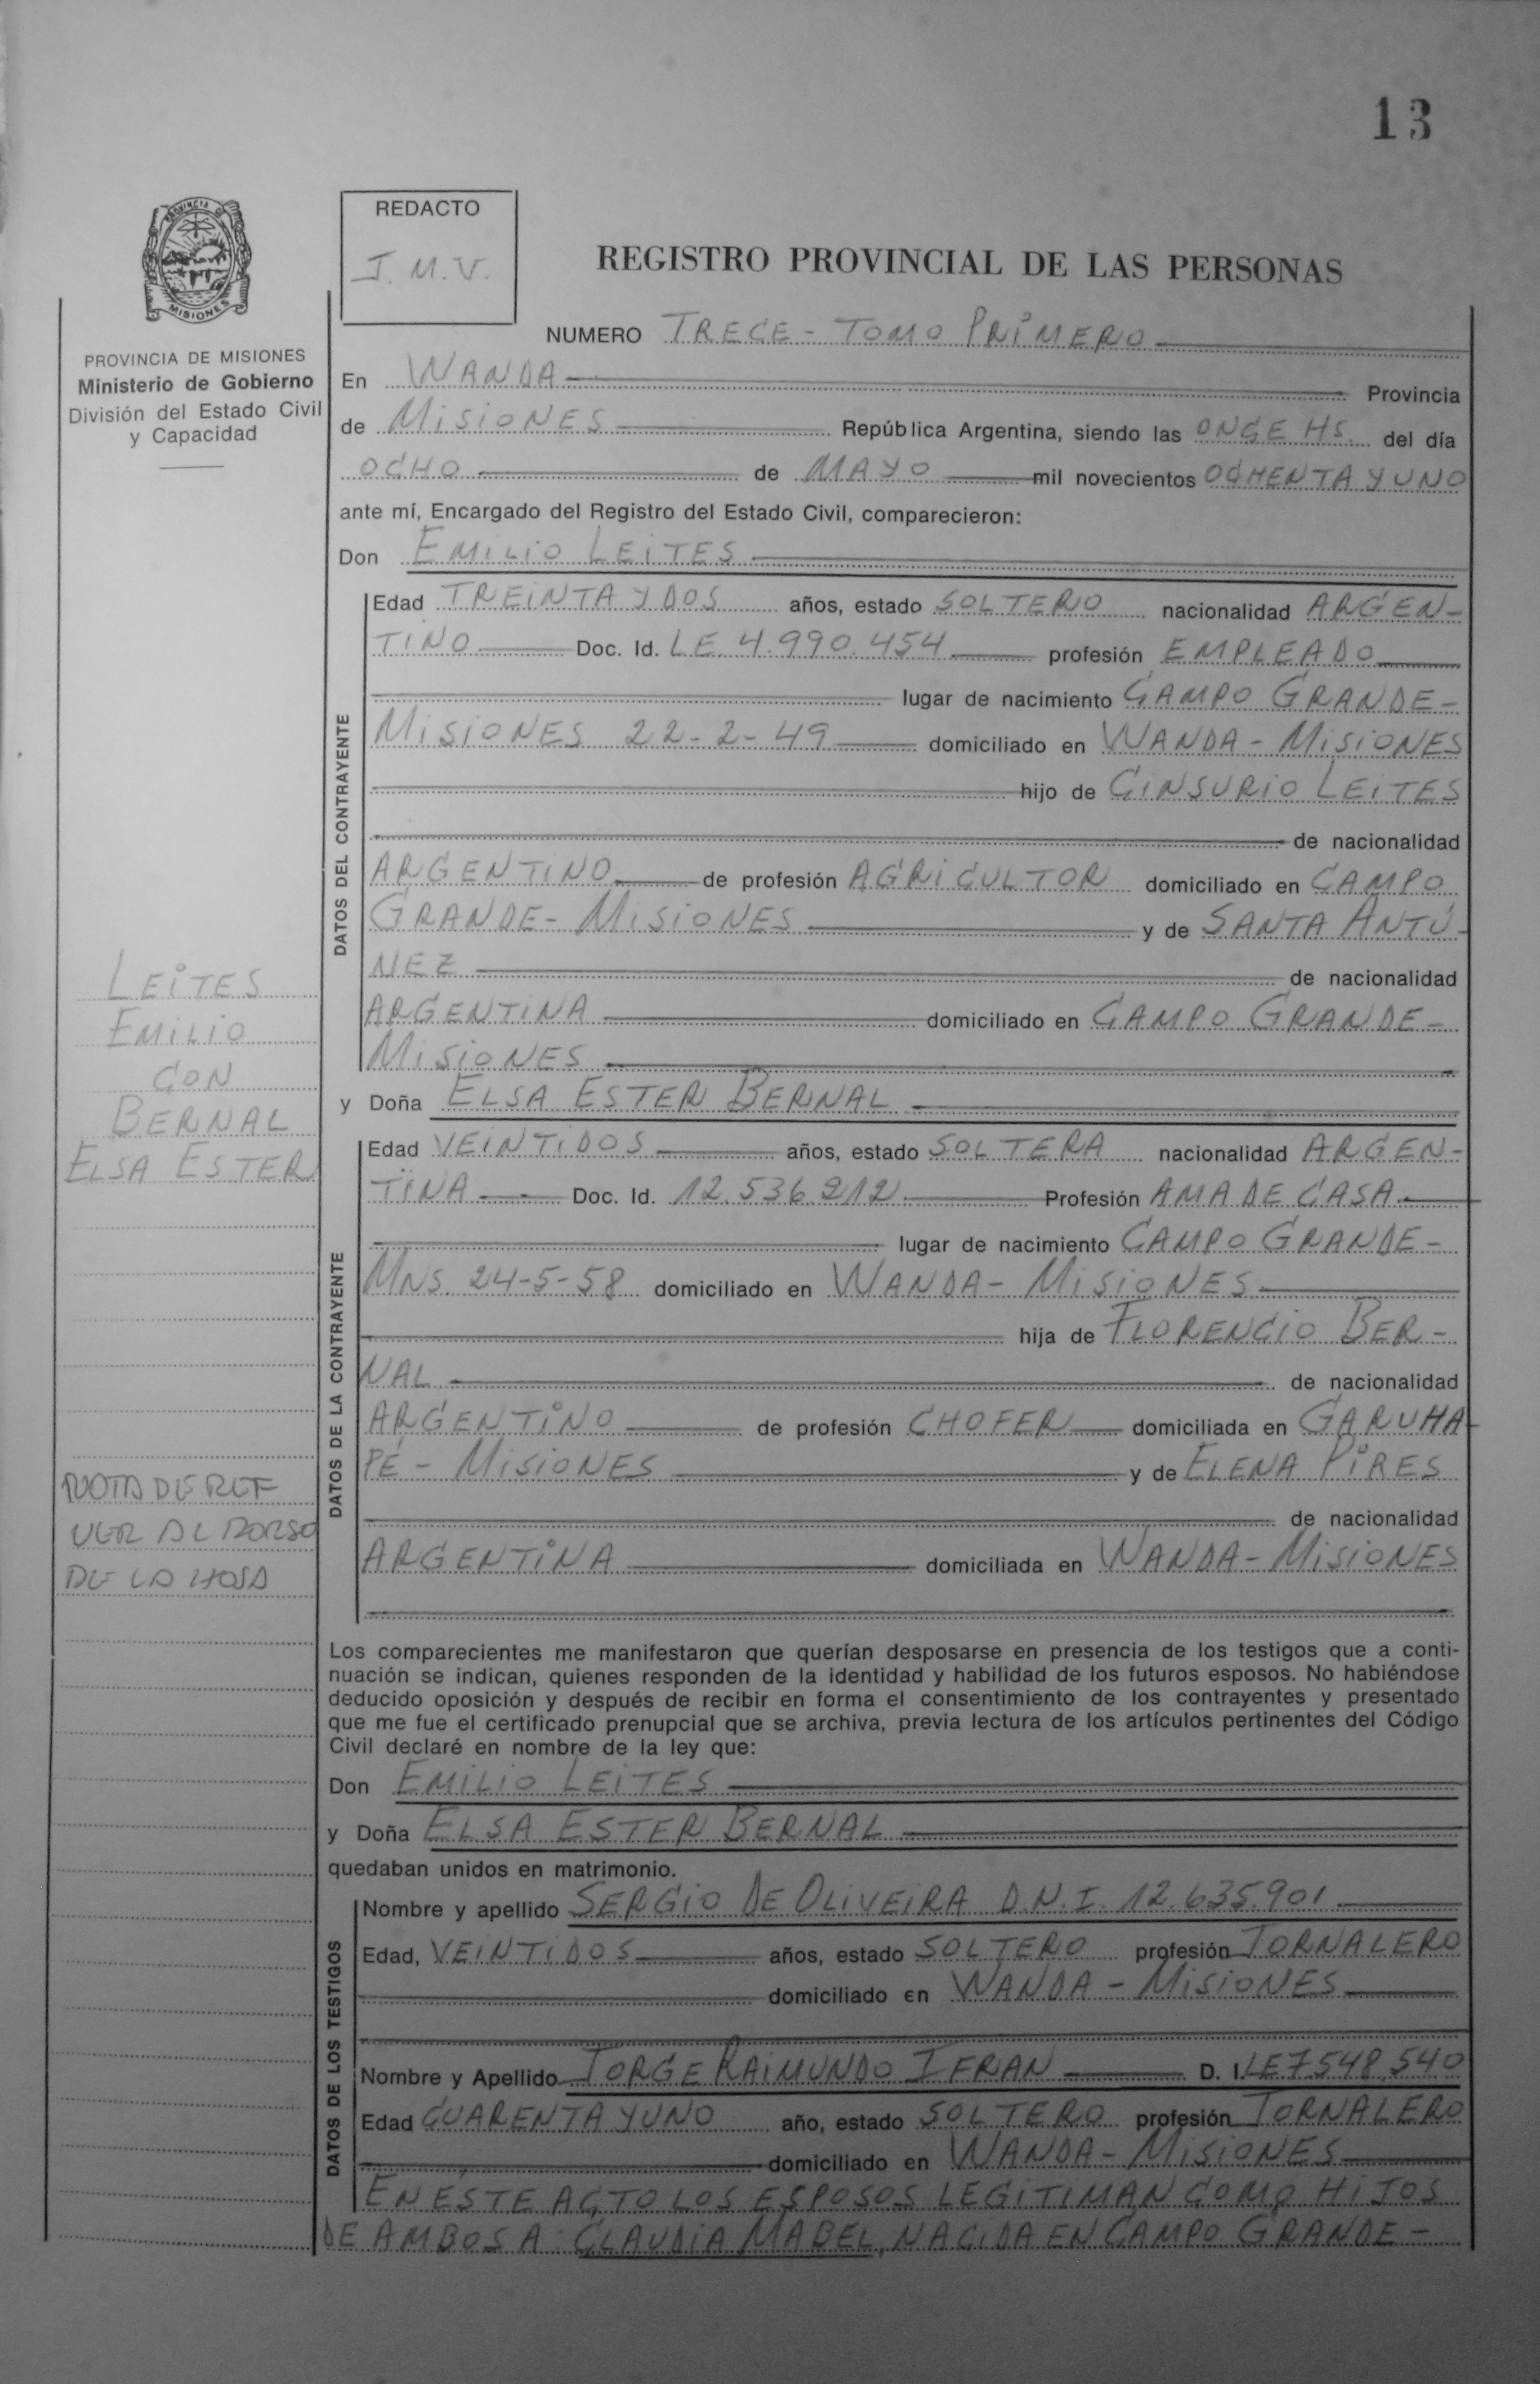 13
PROVINCIA DE
MISIONES
PROVINCIA DE MISIONES
Ministerio de Gobierno
División del Estado Civil
y Capacidad
REDACTO
J.M.V.
REGISTRO PROVINCIAL DE LAS PERSONAS
NUMERO TRECE - TOMO PRIMERO
En WANDA Provincia
de MISIONES República Argentina, siendo las ONCE HS. del día
OCHO de MAYO mil novecientos OCHENTA Y UNO
ante mí, Encargado del Registro del Estado Civil, comparecieron:
Don EMILIO LEITES
DATOS DEL CONTRAYENTE
Edad TREINTA Y DOS años, estado SOLTERO nacionalidad ARGEN-
TINO Doc. Id. LE 4.990.454 profesión EMPLEADO
lugar de nacimiento CAMPO GRANDE-
MISIONES 22-2-49 domiciliado en WANDA - MISIONES
hijo de CINSURIO LEITES
de nacionalidad
ARGENTINO de profesión AGRICULTOR domiciliado en CAMPO
GRANDE - MISIONES y de SANTA ANTÚ-
NEZ de nacionalidad
ARGENTINA domiciliado en CAMPO GRANDE-
MISIONES
y Doña ELSA ESTER BERNAL
DATOS DE LA CONTRAYENTE
Edad VEINTIDOS años, estado SOLTERA nacionalidad ARGEN-
TINA Doc. Id. 12.536.212 Profesión AMA DE CASA
lugar de nacimiento CAMPO GRANDE-
MNS. 24-5-58 domiciliado en WANDA - MISIONES
hija de FLORENCIO BER-
NAL de nacionalidad
ARGENTINO de profesión CHOFER domiciliada en GARUHA
PÉ - MISIONES y de ELENA PIRES
de nacionalidad
ARGENTINA domiciliada en WANDA - MISIONES
LEITES
EMILIO
CON
BERNAL
ELSA ESTER
NOTA DE REF
VER AL DORSO
DE LA HOJA
Los comparecientes me manifestaron que querían desposarse en presencia de los testigos que a conti-
nuación se indican, quienes responden de la identidad y habilidad de los futuros esposos. No habiéndose
deducido oposición y después de recibir en forma el consentimiento de los contrayentes y presentado
que me fue el certificado prenupcial que se archiva, previa lectura de los artículos pertinentes del Código
Civil declaré en nombre de la ley que:
Don EMILIO LEITES
y Doña ELSA ESTER BERNAL
quedaban unidos en matrimonio.
DATOS DE LOS TESTIGOS
Nombre y apellido SERGIO DE OLIVEIRA D.N.I. 12.635.901
Edad, VEINTIDOS años, estado SOLTERO profesión JORNALERO
domiciliado en WANDA - MISIONES
Nombre y Apellido JORGE RAIMUNDO IFRAN D. I. LE 7.548.540
Edad CUARENTA Y UNO año, estado SOLTERO profesión JORNALERO
domiciliado en WANDA - MISIONES
EN ESTE ACTO LOS ESPOSOS LEGITIMAN COMO HIJOS
DE AMBOS A: CLAUDIA MABEL, NACIDA EN CAMPO GRANDE -